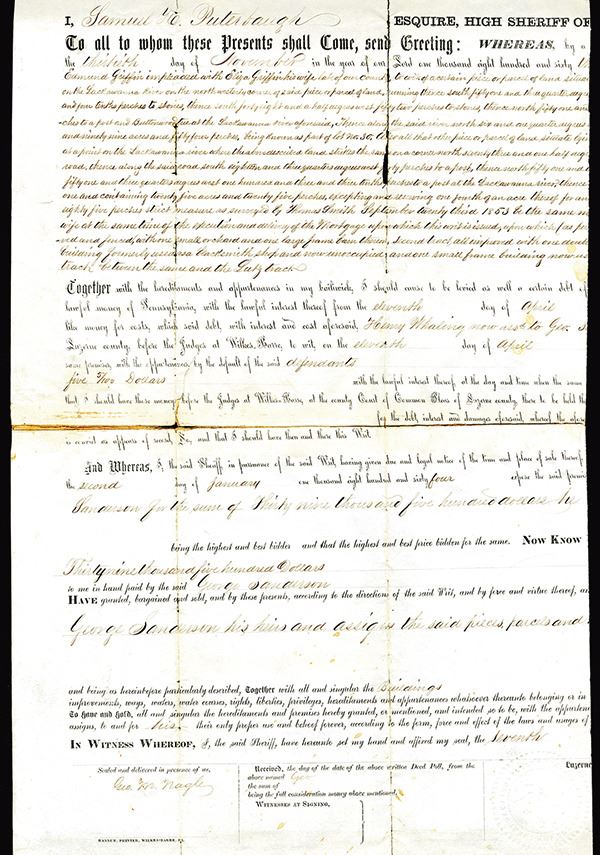 I, Samuel H. Puterbaugh ESQUIRE, HIGH SHERIFF OF
To all to whom these Presents shall Come, send Greeting: WHEREAS, by a
the thirtieth day of November in the year of our Lord one thousand eight hundred and sixty
Edmund Griffin impleaded with Eliza Griffin his wife late of our county to wit of a certain piece or parcel of land situate
on the Lackawanna river on the north westerly corner of said piece or parcel of land, running thence south fifty one and three quarter degrees
and four tenths perches to stones, thence south forty eight and a half degrees west forty two perches to stones, thence north fifty one and
ches to a post and Buttonwood tree at the Lackawanna river aforesaid, thence along the said river north six and one quarter degrees
and ninety nine acres and fifty four perches, being known as part of Lot No. 30, also all that other piece or parcel of land situate
at a point on the Lackawanna river where the above described land strikes the same on a corner north seventy three and one half degrees
road, thence along the said road south eighteen and three quarters degrees west perches to a post, thence north fifty one and
fifty one and three quarters degrees west one hundred and three and three tenths perches to a post at the Lackawanna river, thence
one and containing twenty five acres and twenty five perches, excepting and reserving one fourth of an acre thereof for
eighty five perches strict measure as surveyed by Thomas Smith September twenty third 1853 be the same
wife at the same time of the execution and delivery of the Mortgage upon which this writ is issued, upon which has
ved and fenced, with one small orchard and one large frame barn thereon, second tract all improved with one double
building formerly used as a blacksmith shop and now unoccupied, and one small frame building now
track between the same and the
Together with the hereditaments and appurtenances in my bailiwick, I should cause to be levied as well a certain debt of
lawful money of Pennsylvania, with the lawful interest thereof from the eleventh day of April
like money for costs, which said debt, with interest and cost aforesaid, Henry Whaling now assd to Geo. S
Luzerne county, before the Judges at Wilkes-Barre, to wit, on the eleventh day of April
same premises, with the appurtenances, by the default of the said defendants
five Dollars with the lawful interest thereof, at the day and time when the same
that I should have those moneys before the Judges at Wilkes-Barre, at the county Court of Common Pleas of Luzerne county, there to be held the
for the debt, interest and damages aforesaid, whereof the afore
is convict as appears of record, &c., and that I should have then and there this Writ
And Whereas, I, the said Sheriff, in pursuance of the said Writ, having given due and legal notice of the time and place of sale thereof,
the second day of January one thousand eight hundred and sixty four expose the said premi
Sanderson for the sum of Thirty nine thousand five hundred dollars he
being the highest and best bidder and that the highest and best price bidden for the same. NOW KNOW
Thirty nine thousand five hundred Dollars
to me in hand paid by the said George Sanderson
HAVE granted, bargained and sold, and by these presents, according to the directions of the said Writ, and by force and virtue thereof,
George Sanderson his heirs and assigns the said pieces, parcels and
and being as hereinbefore particularly described, Together with all and singular the Buildings
improvements, ways, waters, water courses, rights, liberties, privileges, hereditaments and appurtenances whatsoever thereunto belonging or in
To Have and Hold, all and singular the hereditaments and premises hereby granted, or mentioned, and intended so to be, with the appurtenan
assigns, to and for his their only proper use and behoof forever, according to the form, force and effect of the laws and usages of
IN WITNESS WHEREOF, I, the said Sheriff, have hereunto set my hand and affixed my seal, the Seventh
Sealed and delivered in presence of us,
Geo. M. Nagle
Received, the day of the date of the above written Deed Poll, from the
above named Geo
the sum of
being the full consideration money above mentioned.
WITNESSES AT SIGNING,
Luzerne
PRINTER, WILKES-BARRE, PA.